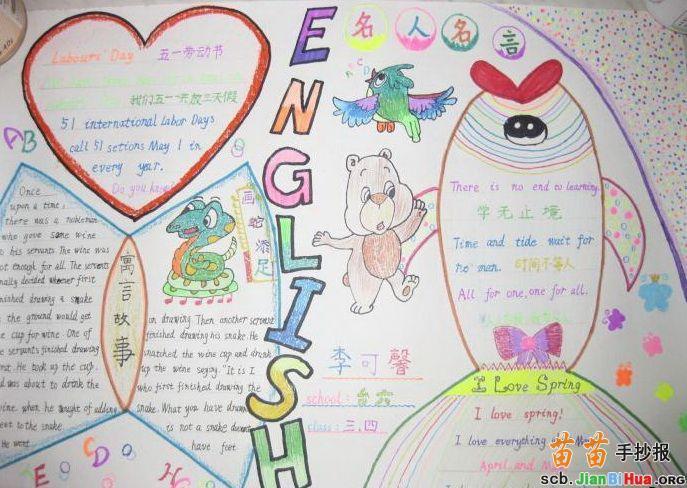 Labours' Day 五一劳动节
我们五一共放三天假
51 international Labor Days
call 51 setions May 1 in
every year.
Do you know
AB
Once
upon a time,
there was a nobleman
who gove some wine
to his servants. The wine was
not enough for all. The servants
finally decided whoever first
finished drawing a snake
the ground would get
e cup for wine. One of
e servants finished drawing
first. He took up the cup.
d was about to drink the
wine when he thought of adding
feet to the snake.
He went
寓言故事
画蛇添足
on drawing. Then another servant
finished drawing his snake. He
snatched the wine cup and drank
up the wine saying. "It is I
who first finished drawing the
snake. What you have drawn
is not a snake
have feet
ENGLISH
名人名言
There is no end to learning.
学无止境
Time and tide wait for
no man. 时间不等人
All for one, one for all.
李可馨
school: 台六
class: 三.四
I Love Spring
I love spring!
I love everything
April, and
苗苗手抄报
scb.JianBiHua.ORG